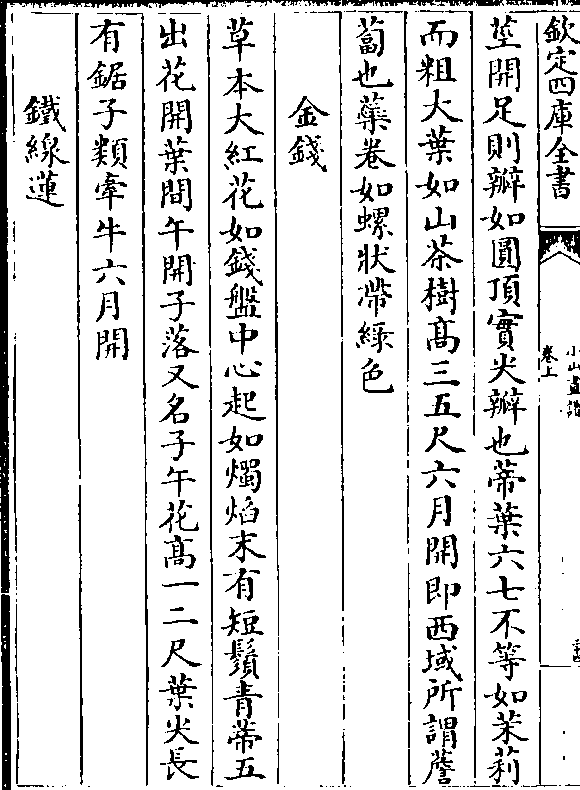 欽定四庫全書
小山畫譜
卷上
莖開足則瓣如圓頂實尖瓣也蒂葉六七不等如茉莉
而粗大葉如山茶樹髙三五尺六月開即西域所謂薝
蔔也蘂卷如螺狀帶緑色
金錢
草本大紅花如錢盤中心起如燭焰末有短鬚青蒂五
出花開葉間午開子落又名子午花髙一二尺葉尖長
有鋸子類牽牛六月開
鐵線蓮